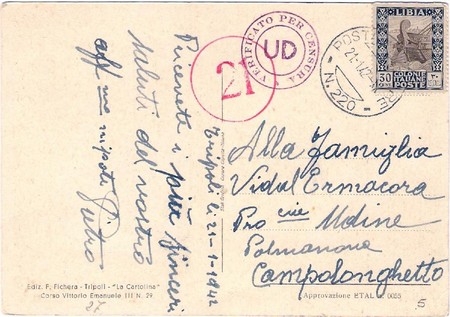 Tripoli li 21-1-1942
Ricevete i più sinceri
saluti del vostro
aff.mo nipote Pietro
VERIFICATO PER CENSURA
UD
21
POSTA
21.1.42
N. 220
LIBIA
50
COLONIE ITALIANE
POSTE
Alla Famiglia
Vidal Ermacora
Pro cie Udine
Palmanova
Campolonghetto
Ediz. F. Fichera - Tripoli - "La Cartolina"
Corso Vittorio Emanuele III N. 29
Approvazione ETAL 0035
27
5